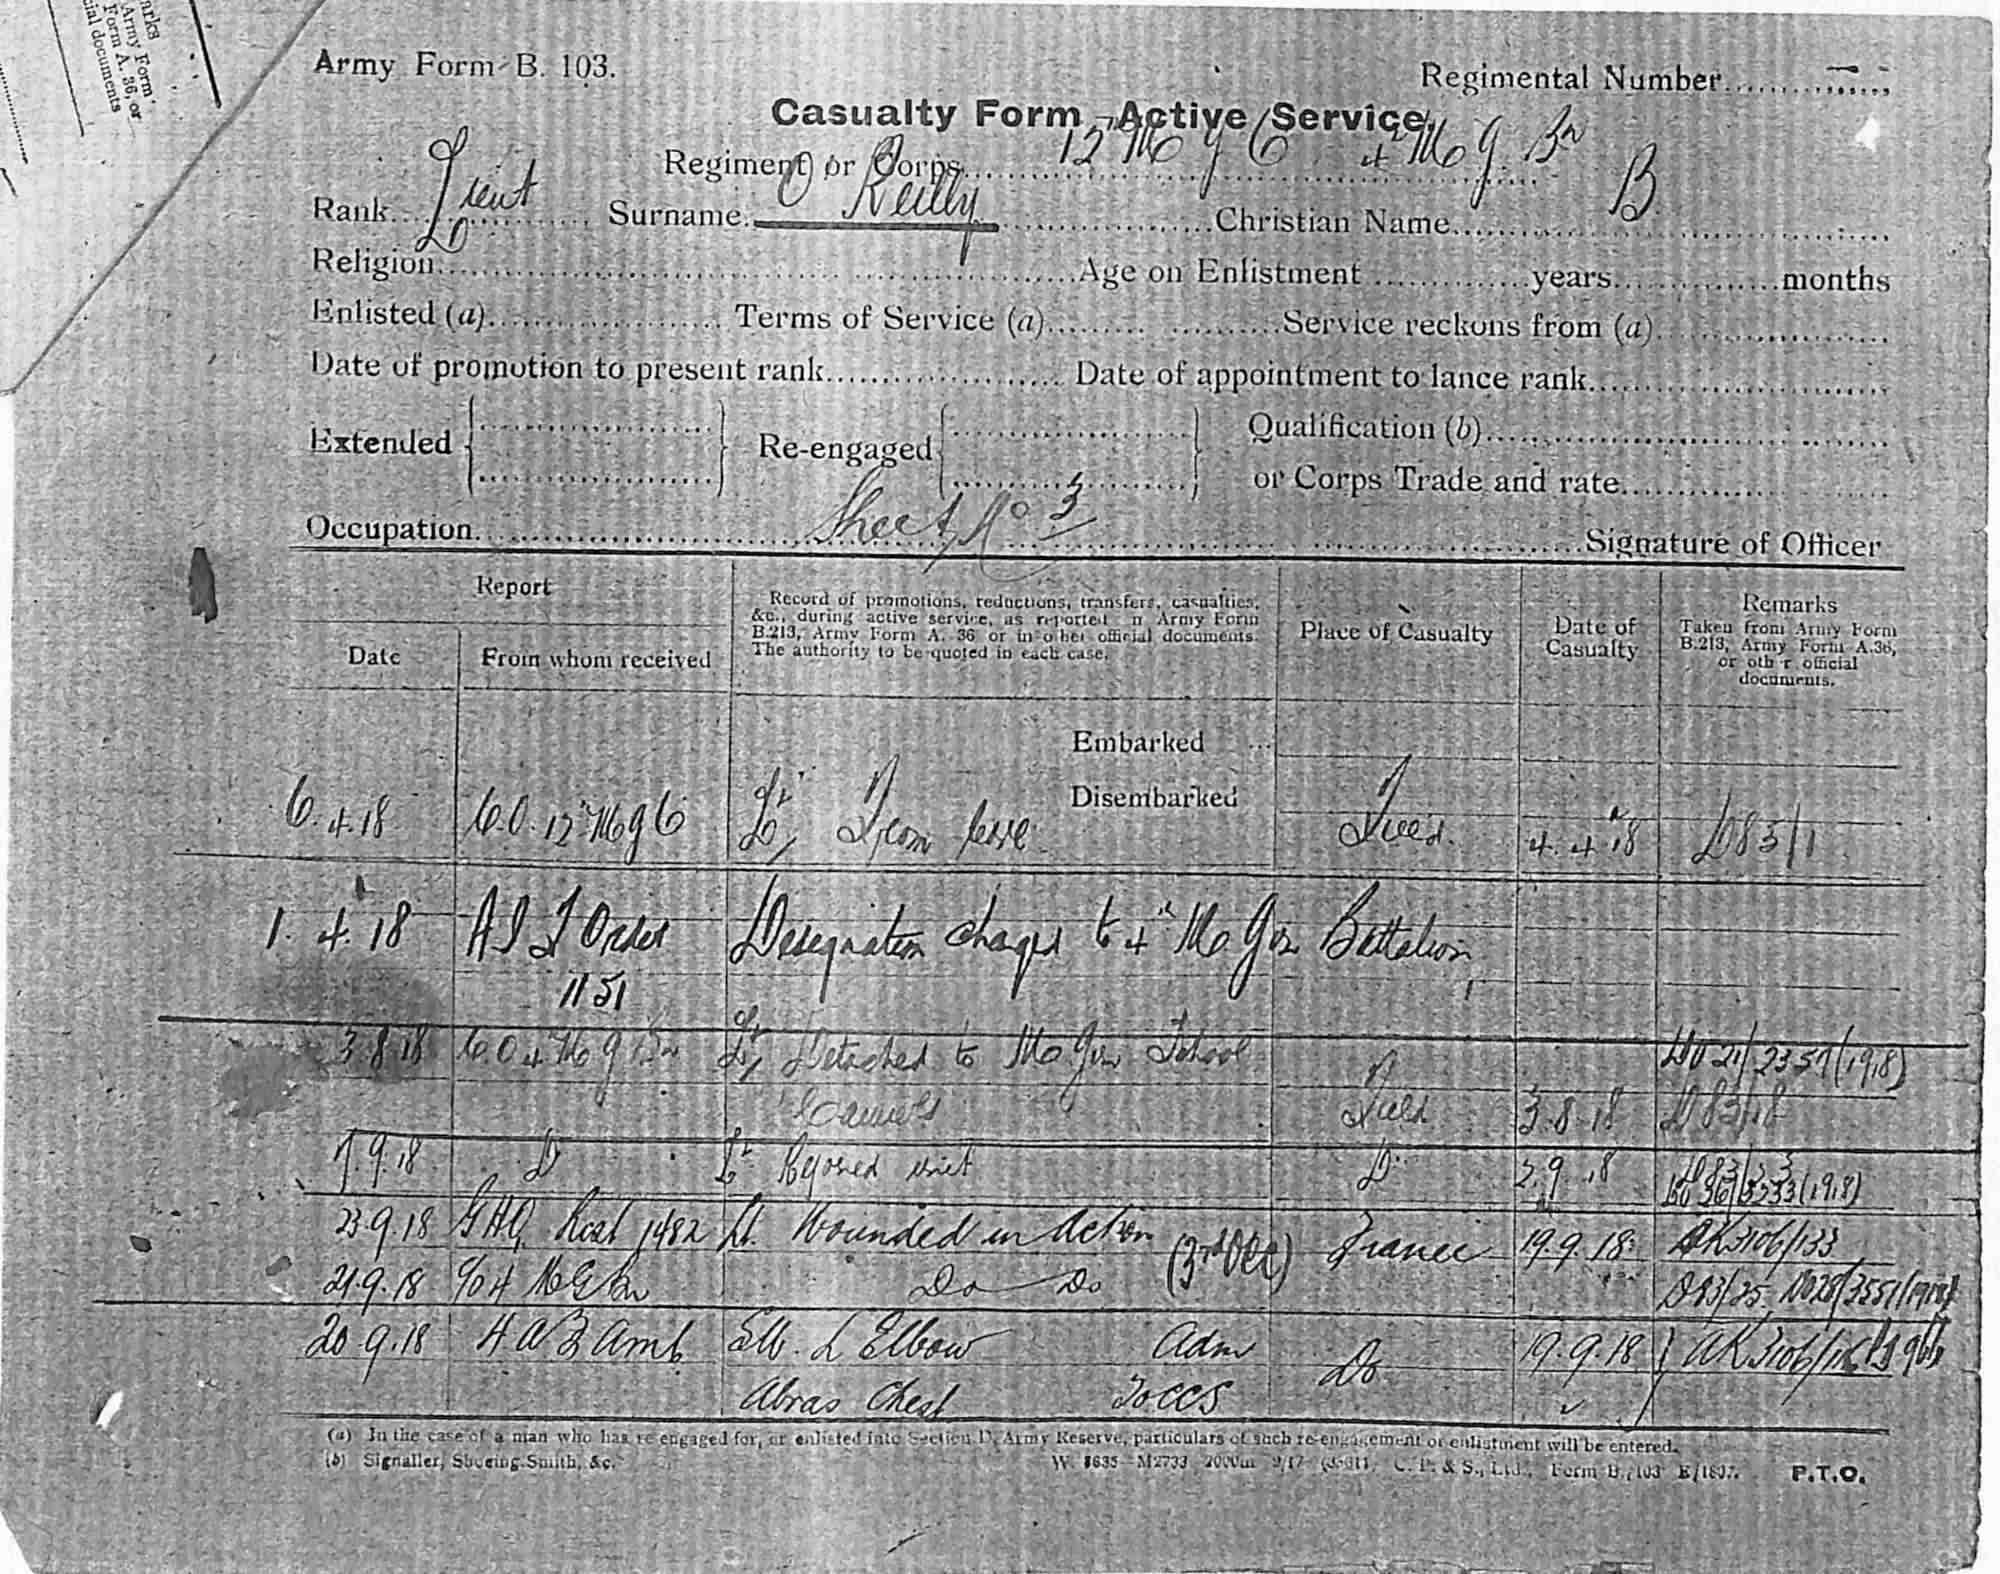 arks
Army Form
Form A. 36, or
cial documents
Army Form B. 103.
Regimental Number
Casualty Form - Active Service
Regiment or Corps 12 M G C 4 M G. Bn
Rank Lieut Surname O Reilly Christian Name B
Religion Age on Enlistment years months
Enlisted (a) Terms of Service (a) Service reckons from (a)
Date of promotion to present rank Date of appointment to lance rank
Extended Re-engaged Qualification (b)
or Corps Trade and rate
Occupation Sheet No 3 Signature of Officer
Report
Date From whom received
Record of promotions, reductions, transfers, casualties, &c., during active service, as reported in Army Form B.213, Army Form A. 36 or in other official documents. The authority to be quoted in each case.
Place of Casualty
Date of Casualty
Remarks
Taken from Army Form B.213, Army Form A.36, or other official documents.
Embarked
Disembarked
6.4.18 C.O. 12 M G C Lt From leave Field. 4.4.18 D83/1
1.4.18 A I F Order Designation changed to 4th M Gun Battalion
1151
3.8.18 C O 4 M G Bn Lt Detached to M Gun School DO 21/2357(1918)
Camiers Field 3.8.18 D83/18
7.9.18 D Lt Rejoined unit D 2.9.18 D83/23
3233(1918)
23.9.18 GHQ List 1482 Lt. Wounded in Action (3rd Occ) France 19.9.18 AK3106/133
21.9.18 C/O 4 M G Bn Do Do D83/25, DO28/3551/1918
20.9.18 4 A F Amb L Elbow Adm Do 19.9.18 AK3106/
Abras Chest To CCS
(a) In the case of a man who has re-engaged for, or enlisted into Section D, Army Reserve, particulars of such re-engagement or enlistment will be entered.
(b) Signaller, Shoeing Smith, &c.
W. 8635—M2733 C. P. & S., Ltd., Form B./103 E/1897. P.T.O.